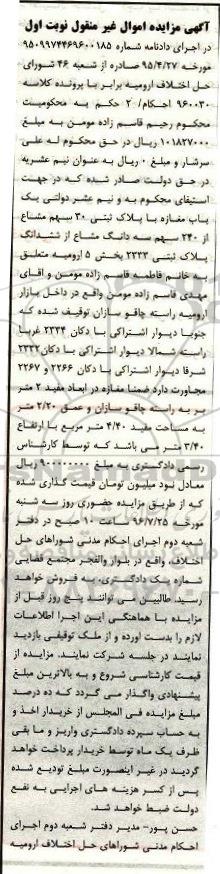 آگهی مزایده اموال غیر منقول نوبت اول
در اجرای دادنامه شماره ۹۵۰۹۹۷۴۴۶۹۶۰۰۱۸۵
مورخه ۹۵/۴/۲۷ صادره از شعبه ۴۶ شورای
حل اختلاف ارومیه برابر با پرونده کلاسه
۹۶۰۰۳۰ احکام/ ۲ حکم به محکومیت
محکوم رحیم قاسم زاده مومن به مبلغ
۱۰۱۸۲۷۰۰۰ ریال در حق محکوم له علی
سرشار و مبلغ ۰ ریال به عنوان نیم عشریه
در حق دولت صادر شده که در جهت
استیفای محکوم به و نیم عشر دولتی یک
باب مغازه با پلاک ثبتی ۳۰ سهم مشاع
از ۲۴۰ سهم سه دانگ مشاع از ششدانگ
پلاک ثبتی ۲۳۳۳ بخش ۵ ارومیه متعلق
به خانم فاطمه قاسم زاده مومن و اقای
مهدی قاسم زاده مومن واقع در داخل بازار
ارومیه راسته چاقو سازان توقیف شده که
جنوبا دیوار اشتراکی با دکان ۲۳۳۴ غربا
راسته شمالا دیوار اشتراکی با دکان ۲۳۳۲
شرقا دیوار اشتراکی با دکان ۲۲۶۶ و ۲۲۶۷
مجاورت دارد ضمنا مغازه در ابعاد مفید ۲ متر
بر به راسته چاقو سازان و عمق ۲/۲۰ متر
به مساحت مفید ۴/۴۰ متر مربع با ارتفاع
۳/۴۰ متر می باشد که توسط کارشناس
رسمی دادگستری به مبلغ ۹۰۰۰۰۰۰۰۰ ریال
معادل نود میلیون تومان قیمت گذاری شده
که از طریق مزایده حضوری روز سه شنبه
مورخه ۹۶/۷/۲۵ ساعت ۱۰ صبح در دفتر
شعبه دوم اجرای احکام مدنی شوراهای حل
اختلاف واقع در بلوار والفجر مجتمع قضایی
شماره یک دادگستری، به فروش خواهد
رسید طالبین می توانند پنج روز قبل از
مزایده با هماهنگی این اجرا اطلاعات
لازم را بدست اورده و از ملک توقیفی بازدید
نمایند در جلسه شرکت نمایند. مزایده از
قیمت کارشناسی شروع و به بالاترین مبلغ
پیشنهادی واگذار می گردد که ده درصد
مبلغ مزایده فی المجلس از خریدار اخذ و
به حساب سپرده دادگستری واریز و ما بقی
ظرف یک ماه توسط خریدار پرداخت خواهد
گردید در غیر اینصورت مبلغ تودیع شده
پس از کسر هزینه های اجرایی به نفع
دولت ضبط خواهد شد.
حسن پور– مدیر دفتر شعبه دوم اجرای
احکام مدنی شوراهای حل اختلاف ارومیه